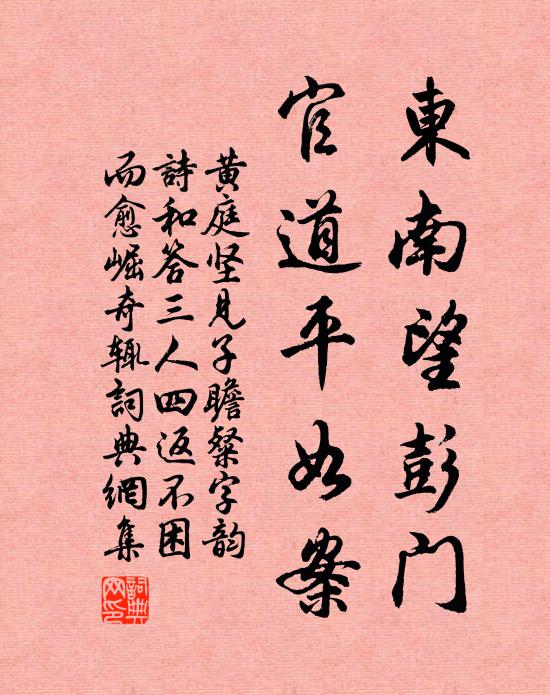 東南望彭門
官道平如案
黄庭坚見子瞻粲字韵
詩和答三人四返不困
而愈崛奇辄詞典網集
詞典網印